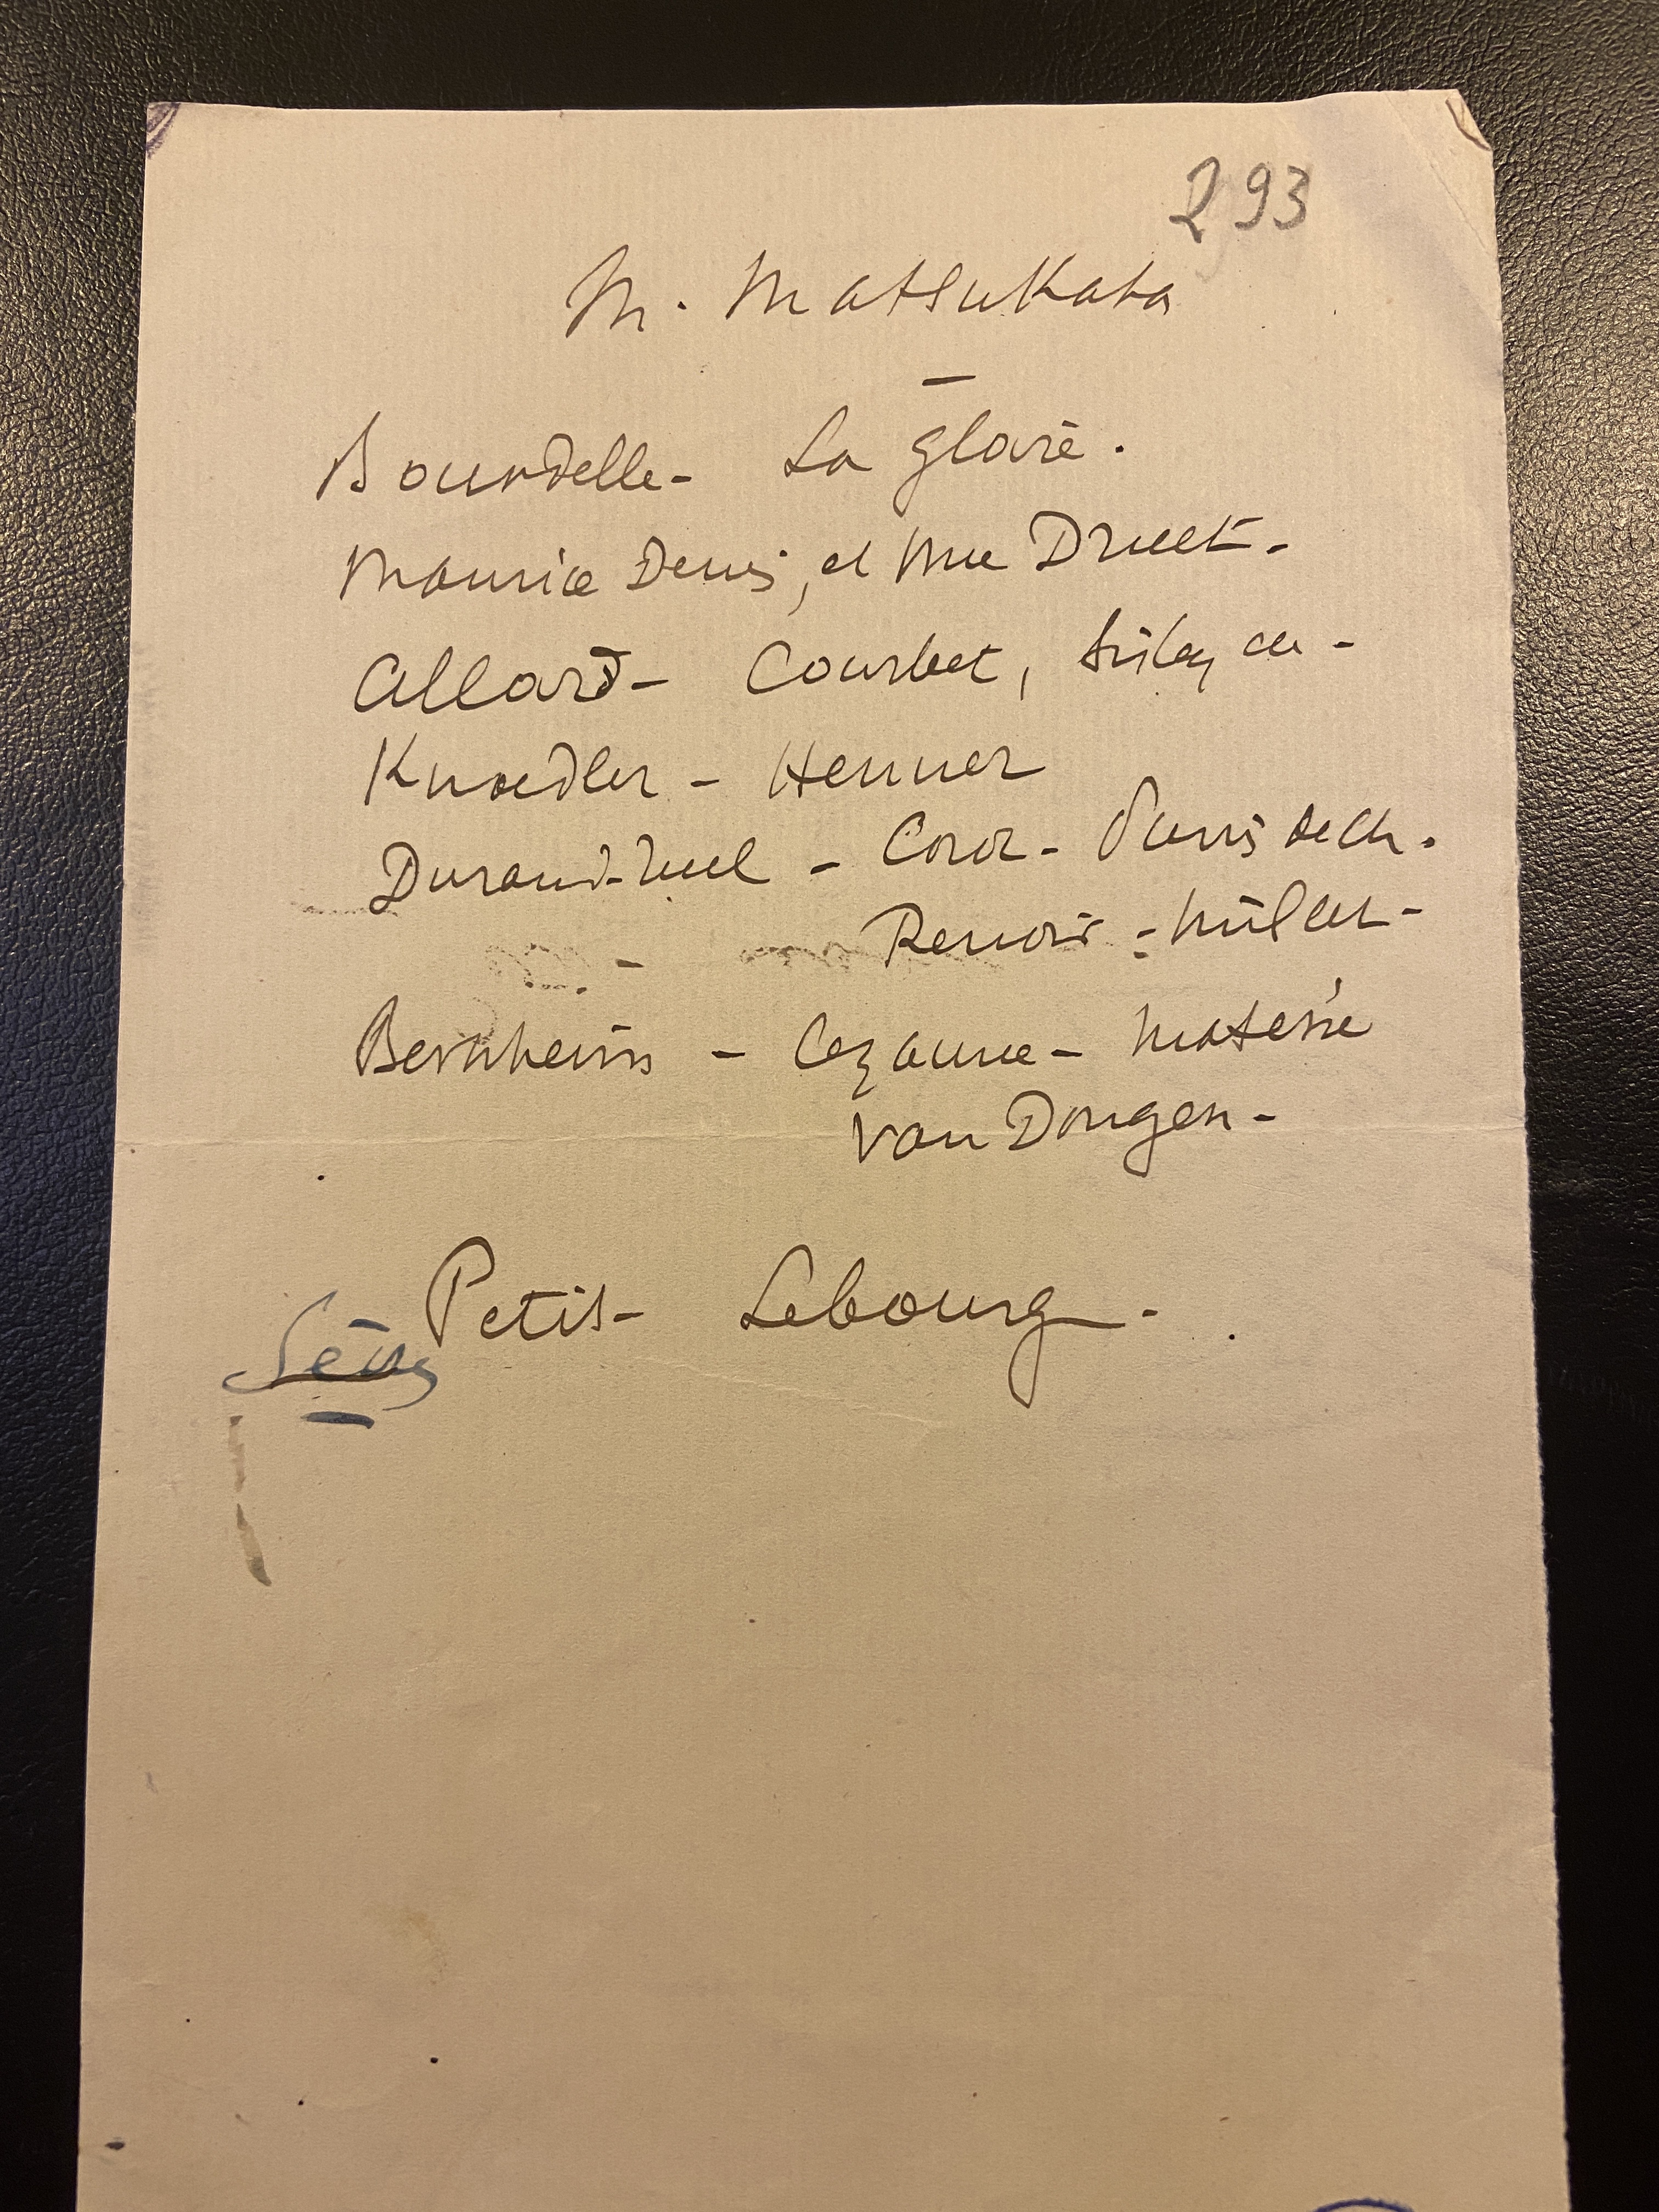 293
M. Matsukata
—
Bourdelle - La gloire.
Maurice Denis, et Mme Druet -
Allard - Courbet,
Knoedler - Henner
Durand-Ruel - Corot - Puvis de Ch.
- Renoir - Millet -
Bernheim - Cezanne - Matisse
Van Dongen -
Petit - Lebourg -